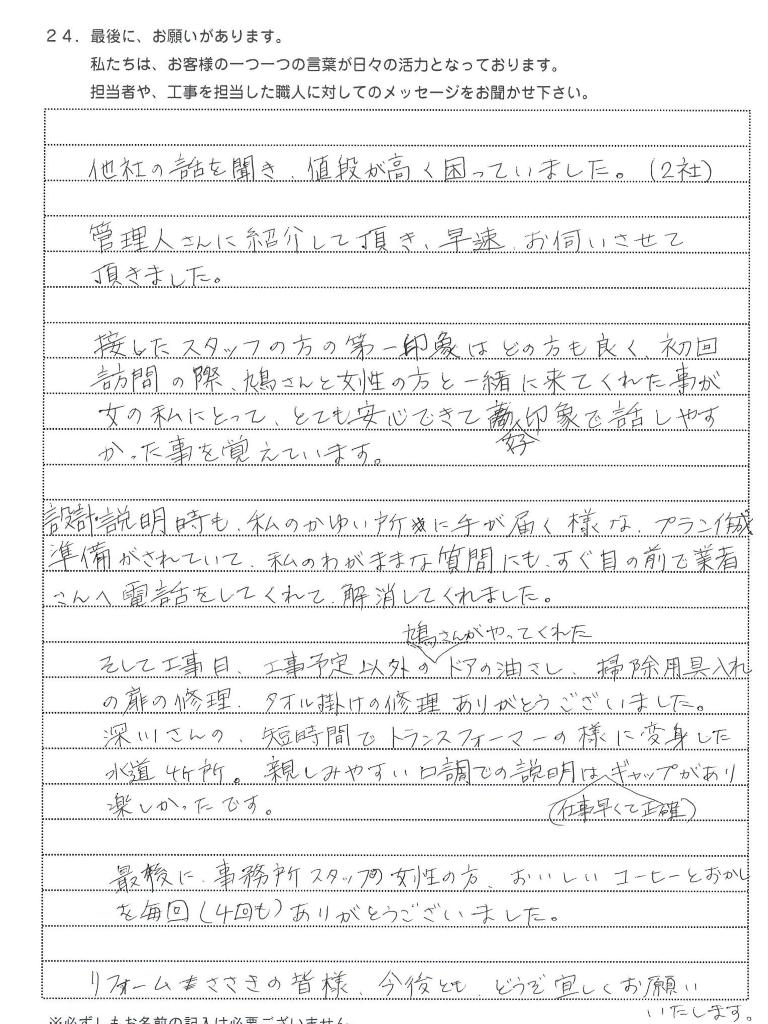 24．最後に、お願いがあります。
私たちは、お客様の一つ一つの言葉が日々の活力となっております。
担当者や、工事を担当した職人に対してのメッセージをお聞かせ下さい。
他社の話を聞き、値段が高く困っていました。(2社)
管理人さんに紹介して頂き、早速、お伺いさせて
頂きました。
接したスタッフの方の第一印象はどの方も良く、初回
訪問の際、鳩さんと女性の方と一緒に来てくれた事が
女の私にとって、とても安心できて好印象で話しやす
かった事を覚えています。
設計・説明時も、私のかゆい所に手が届く様な、プラン作成
準備がされていて、私のわがままな質問にも、すぐ目の前で業者
さんへ電話をしてくれて、解消してくれました。
鳩さんがやってくれた
そして工事日、工事予定以外のドアの油さし、掃除用具入れ
の扉の修理、タオル掛けの修理ありがとうございました。
深川さんの、短時間でトランスフォーマーの様に変身した
水道4ヶ所。親しみやすい口調での説明はギャップがあり
楽しかったです。
(仕事早くて正確)
最後に、事務所スタッフの女性の方、おいしいコーヒーとおかし
を毎回(4回も)ありがとうございました。
リフォームささきの皆様、今後とも、どうぞ宜しくお願い
いたします。
※必ずしもお名前の記入は必要ございません